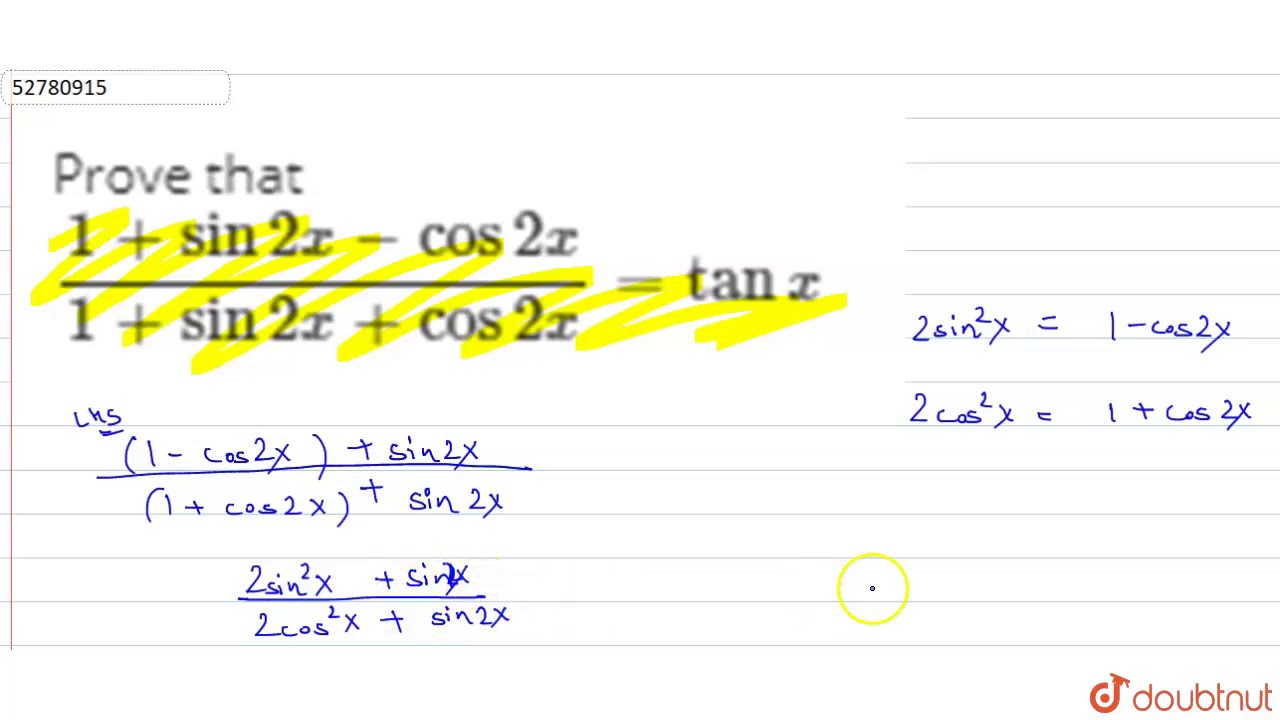 52780915
Prove that
1 + sin 2x − cos 2x
1 + sin 2x + cos 2x
= tan x
2sin²x = 1 - cos2x
2cos²x = 1 + cos2x
LHS
(1 - cos2x) + sin2x
(1 + cos2x) + sin2x
2sin²x + sin2x
2cos²x + sin2x
doubtnut